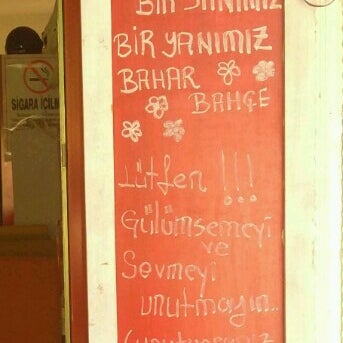 BİR YANIMIZ
BİR YANIMIZ
BAHAR
BAHÇE
Lütfen !!!
Gülümsemeyi
ve
Sevmeyi
unutmayın..
SİGARA İÇİLM